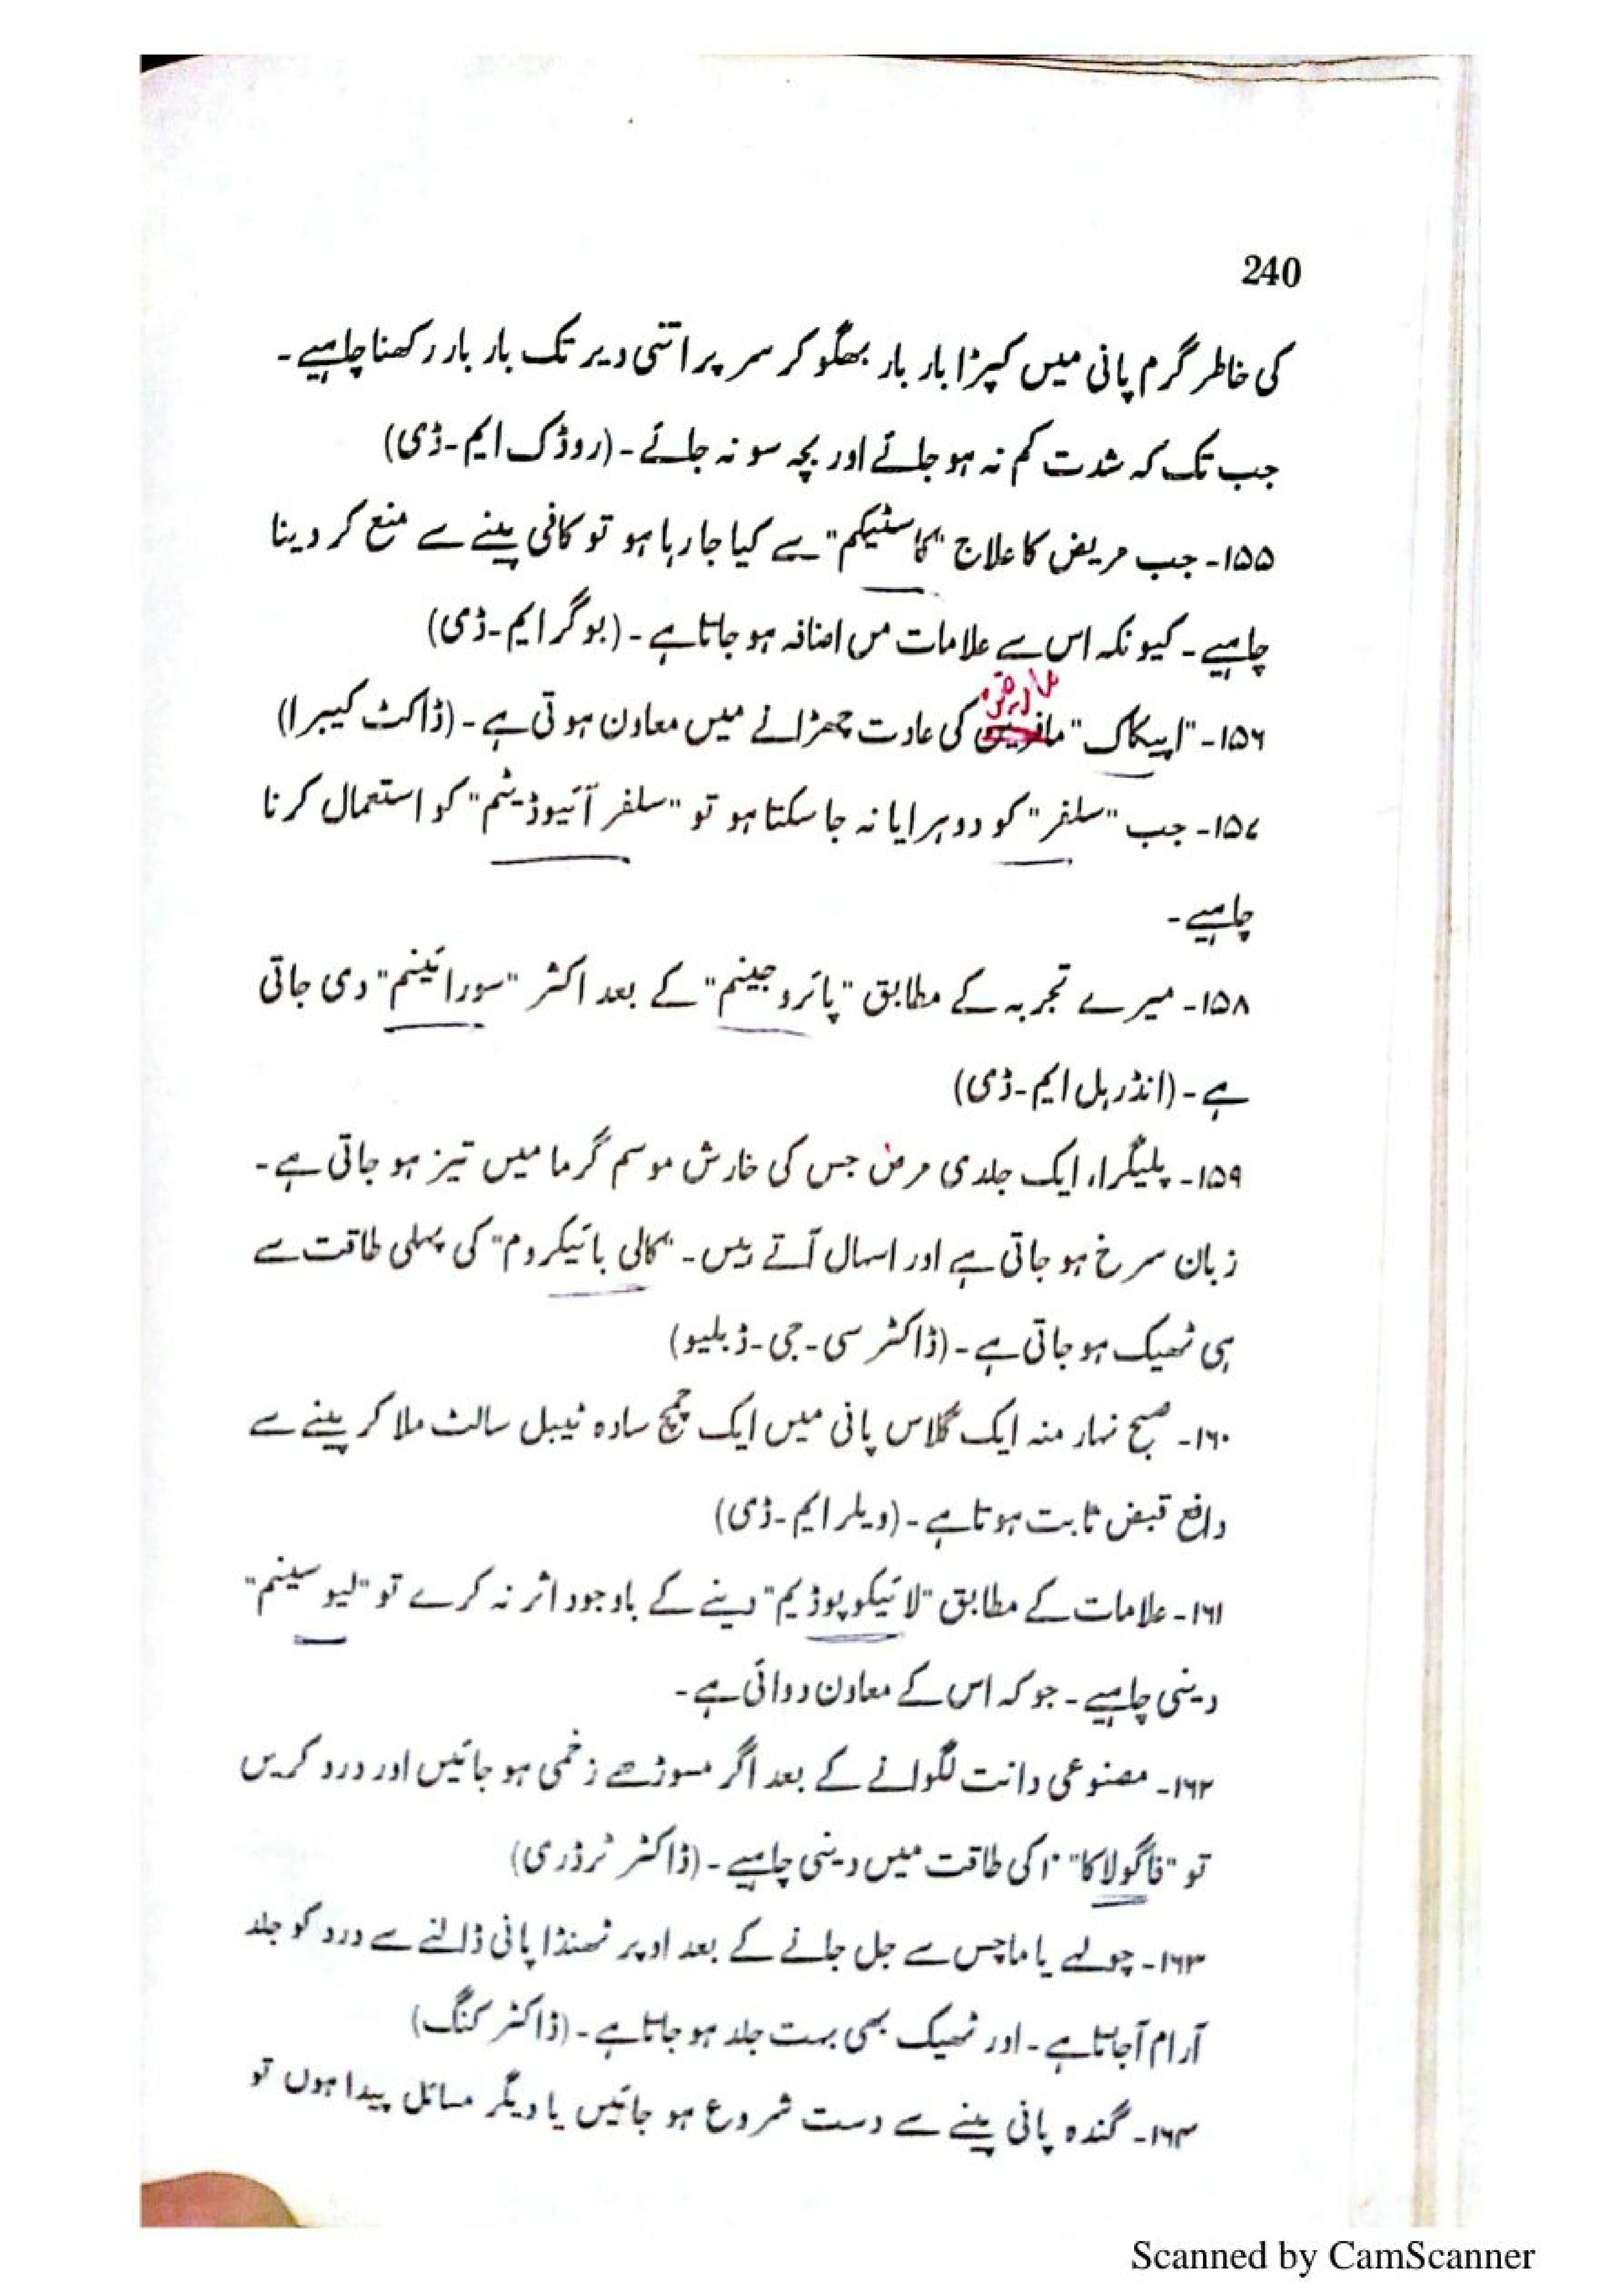 240
کی خاطر گرم پانی میں کپڑا بار بار بھگو کر سر پر اتنی دیر تک بار بار رکھنا چاہیے۔
جب تک کہ شدت کم نہ ہو جائے اور بچہ سو نہ جائے۔ (روڈک ایم۔ڈی)
۱۵۵۔ جب مریض کا علاج "کاسٹیکم" سے کیا جا رہا ہو تو کافی پینے سے منع کر دینا
چاہیے۔ کیونکہ اس سے علامات میں اضافہ ہو جاتا ہے۔ (بوگر ایم۔ڈی)
۱۵۶۔ "اپیکاک" مافریس کی عادت چھڑانے میں معاون ہوتی ہے۔ (ڈاکٹ کیبرا)
۱۵۷۔ جب "سلفر" کو دوہرایا نہ جا سکتا ہو تو "سلفر آئیوڈیٹم" کو استعمال کرنا
چاہیے۔
۱۵۸۔ میرے تجربہ کے مطابق "پائروجینم" کے بعد اکثر "سورائینم" دی جاتی
ہے۔ (انڈرہل ایم۔ڈی)
۱۵۹۔ پلیگرا، ایک جلدی مرض جس کی خارش موسم گرما میں تیز ہو جاتی ہے۔
زبان سرخ ہو جاتی ہے اور اسہال آتے ہیں۔ "کالی بائیکروم" کی پہلی طاقت سے
ہی ٹھیک ہو جاتی ہے۔ (ڈاکٹر سی۔جی۔ڈبلیو)
۱۶۰۔ صبح نہار منہ ایک گلاس پانی میں ایک چمچ سادہ ٹیبل سالٹ ملا کر پینے سے
دافع قبض ثابت ہوتا ہے۔ (ویلر ایم۔ڈی)
۱۶۱۔ علامات کے مطابق "لائیکوپوڈیم" دینے کے باوجود اثر نہ کرے تو "لیوسینم"
دینی چاہیے۔ جو کہ اس کے معاون دوائی ہے۔
۱۶۲۔ مصنوعی دانت لگوانے کے بعد اگر مسوڑھے زخمی ہو جائیں اور درد کریں
تو "فاگولاکا" ۳۰ کی طاقت میں دینی چاہیے۔ (ڈاکٹر ٹرڈری)
۱۶۳۔ چولہے یا ماچس سے جل جانے کے بعد اوپر ٹھنڈا پانی ڈالنے سے درد کو جلد
آرام آجاتا ہے۔ اور ٹھیک بھی بہت جلد ہو جاتا ہے۔ (ڈاکٹر کنگ)
۱۶۴۔ گندہ پانی پینے سے دست شروع ہو جائیں یا دیگر مسائل پیدا ہوں تو
Scanned by CamScanner